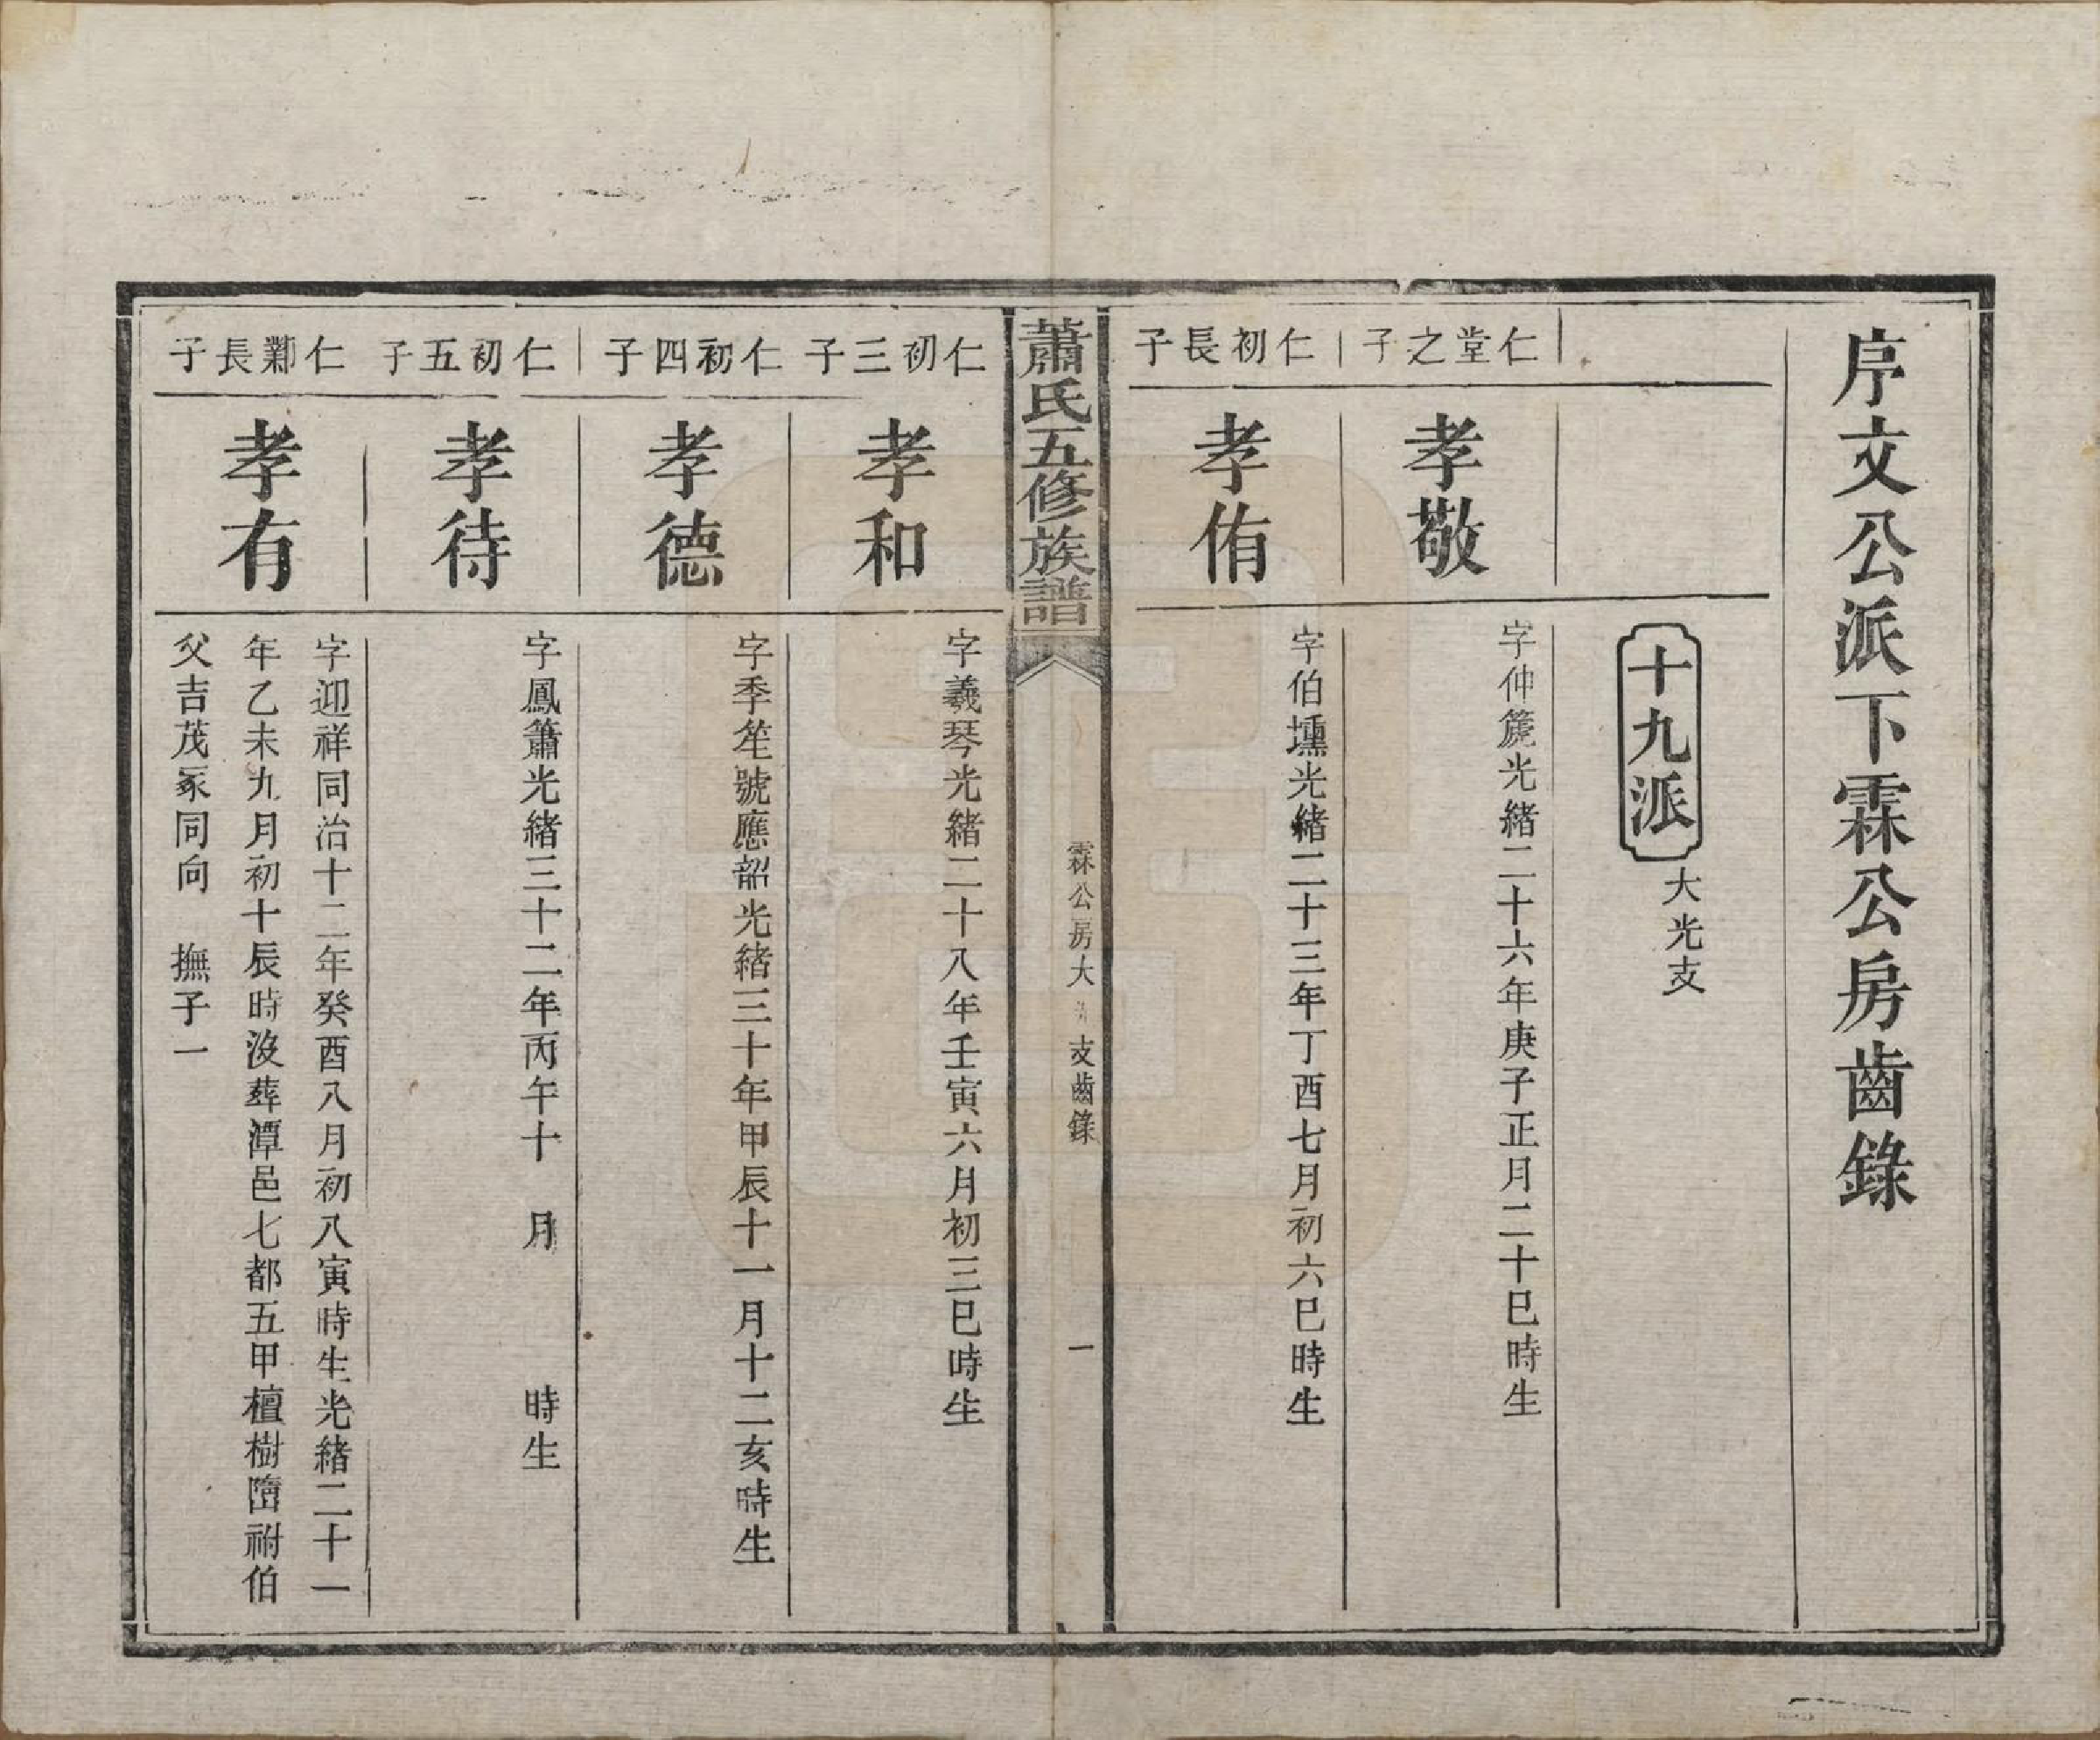 序文公派下霖公房齒錄
十九派
大光支
仁堂之子
孝敬
字仲箎光緒二十六年庚子正月二十巳時生
仁初長子
孝侑
字伯壎光緒二十三年丁酉七月初六巳時生
蕭氏五修族譜
霖公房大 支齒錄
一
仁初三子
孝和
字羲琴光緒二十八年壬寅六月初三巳時生
仁初四子
孝德
字季笙號應韶光緒三十年甲辰十一月十二亥時生
仁初五子
孝待
字鳳簫光緒三十二年丙午十 月 時生
仁 長子
孝有
字迎祥同治十二年癸酉八月初八寅時生光緒二十一
年乙未九月初十辰時沒葬潭邑七都五甲檀樹 祔伯
父吉茂冢同向 撫子一